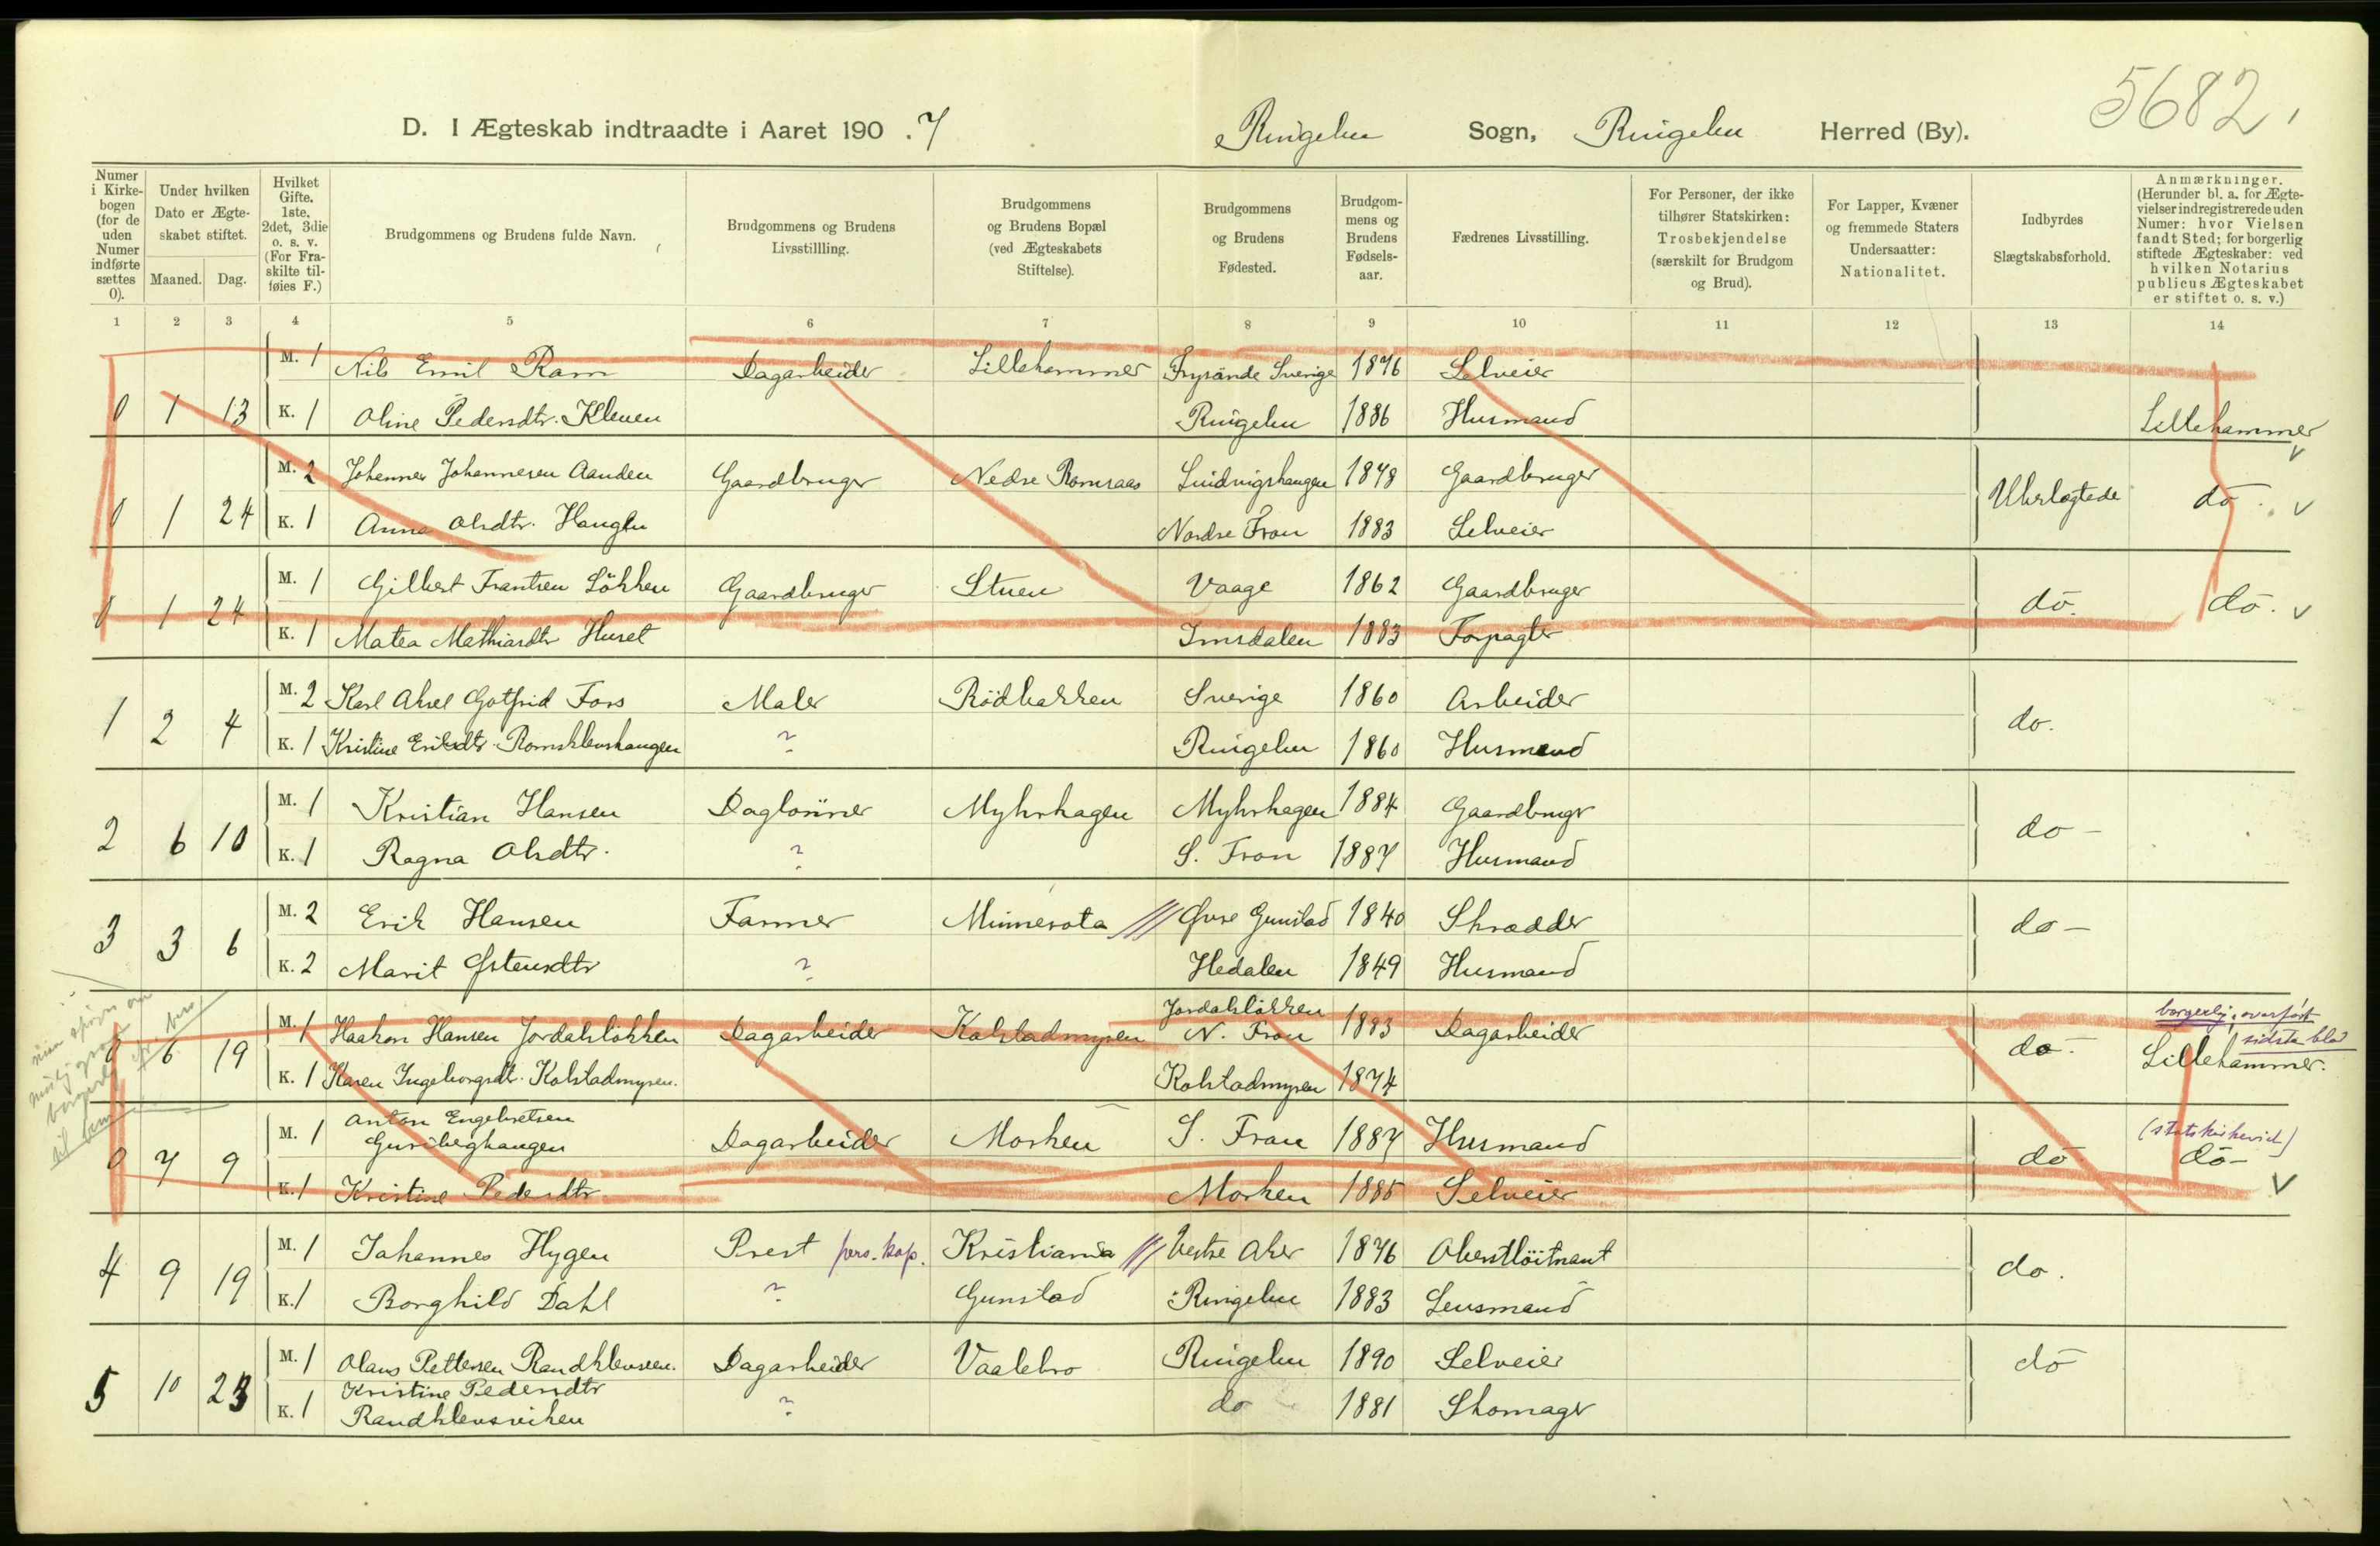 5682,
D. I Ægteskab indtraadte i Aaret 190.7 Ringebu Sogn, Ringebu Herred (By).
Numer i Kirke-bogen (for de uden Numer indførte sættes 0). Under hvilken Dato er Ægte-skabet stiftet. Maaned. Dag. Hvilket Gifte. 1ste, 2det, 3die o. s. v. (For Fra-skilte til-føies F.) Brudgommens og Brudens fulde Navn. Brudgommens og Brudens Livsstillling. Brudgommens og Brudens Bopæl (ved Ægteskabets Stiftelse). Brudgommens og Brudens Fødested. Brudgom-mens og Brudens Fødsels-aar. Fædrenes Livsstilling. For Personer, der ikke tilhører Statskirken: Trosbekjendelse (særskilt for Brudgom og Brud). For Lapper, Kvæner og fremmede Staters Undersaatter: Nationalitet. Indbyrdes Slægtskabsforhold. Anmærkninger. (Herunder bl. a. for Ægte-vielser indregistrerede uden Numer: hvor Vielsen fandt Sted; for borgerlig stiftede Ægteskaber: ved hvilken Notarius publicus Ægteskabet er stiftet o. s. v.)
1 2 3 4 5 6 7 8 9 10 11 12 13 14
M. 1 Nils Emil Ram Dagarbeider Lillehammer Frysände Sverige 1876 Selveier
0 1 13 K. 1 Oline Pedersdtr. Kleven Ringebu 1886 Husmand Lillehammer
M. 2 Johannes Johannesen Aanden Gaardbruger Nedre Romsaas Lundvigshaugen 1848 Gaardbruger
0 1 24 K. 1 Anna Olsdtr. Haugen Nordre Fron 1883 Selveier Ubeslægtede do. v
M. 1 Gilbert Frantsen Løkken Gaardbruger Stuen Vaage 1862 Gaardbruger
0 1 24 K. 1 Matea Mathiasdtr Huset Imsdalen 1883 Forpagter do. do. v
M. 2 Karl Aksel Gotfrid Fors Maler Rødbakken Sverige 1860 Arbeider
1 2 4 K. 1 Kristine Eriksdtr. Romsklevshaugen ? Ringebu 1860 Husmand do.
M. 1 Kristian Hansen Daglønner Myhrhagen Myhrhagen 1884 Gaardbrugr
2 6 10 K. 1 Ragna Olsdtr. ? S. Fron 1887 Husmand do -
M. 2 Erik Hansen Farmer Minnesota /// Øvre Gunstad 1840 Skrædder
3 3 6 K. 2 Marit Østensdtr ? Hedalen 1849 Husmand do -
M. 1 Haakon Hansen Jordalsløkken Dagarbeider Kolstadmyren Jordalsløkken N. Fron 1883 Dagarbeider borgerlig, overført sidste blad
0 6 19 K. 1 Karen Ingeborgsdtr. Kolstadmyren. Kolstadmyren 1874 do - Lillehammer.
M. 1 Anton Engebretsen Guriberghaugen Dagarbeider Morken S. Fron 1887 Husmand (statskirkevid)
0 7 9 K. 1 Kristine Pedersdtr. Morken 1885 Selveier do do - v
M. 1 Johannes Hygen Prest pers. kap. Kristiania /// Vestre Aker 1876 Oberstløitnant
4 9 19 K. 1 Borghild Dahl ? Gunstad Ringebu 1883 Lensmand do.
M. 1 Olaus Pettersen Randklevseen. Dagarbeider Vaalebro Ringebu 1890 Selveier do
5 10 23 K. 1 Kristine Pedersdtr Randklevsviken ? do 1881 Skomagr